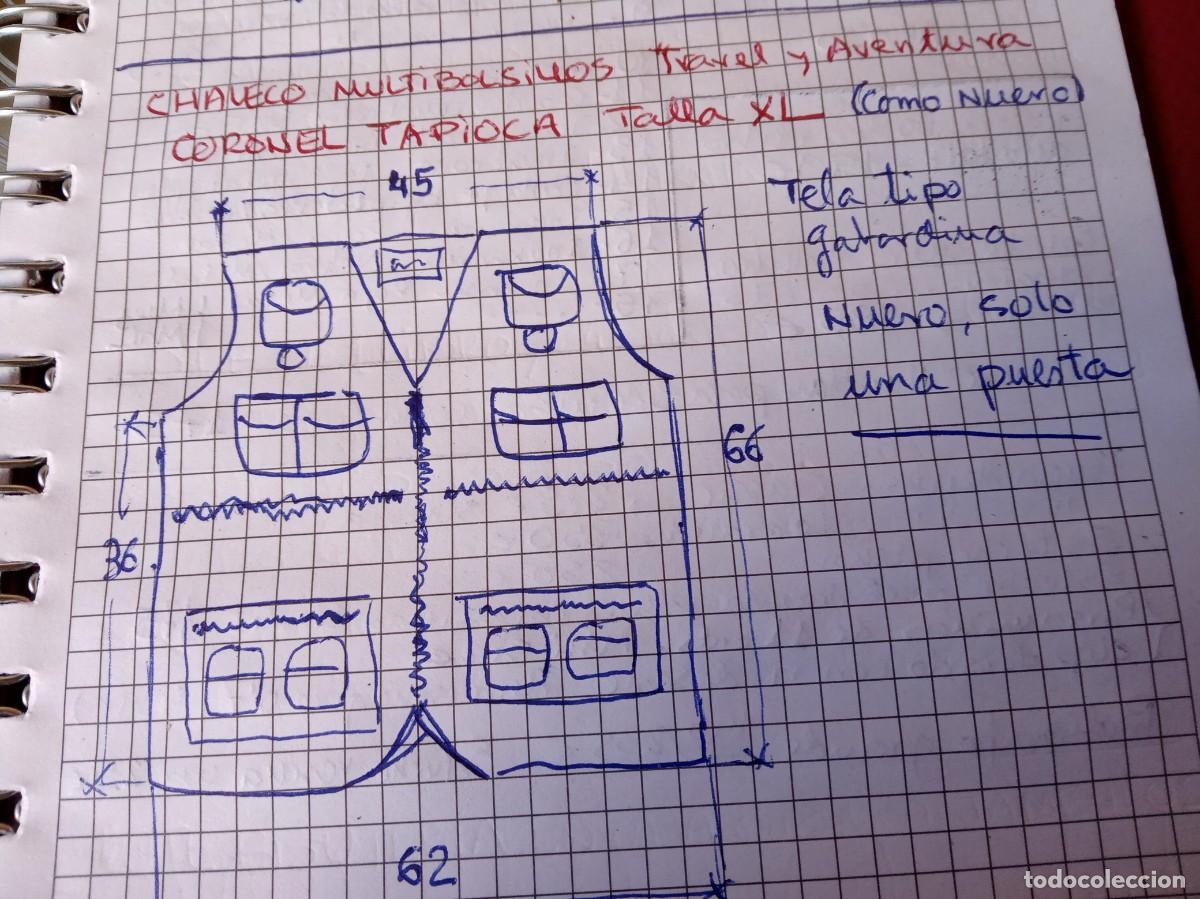 CHALECO MULTIBOLSILLOS Travel y Aventura
CORONEL TAPIOCA Talla XL (Como Nuevo)
45
Tela tipo
gabardina
Nuevo, solo
una puesta
66
36
62
todocoleccion